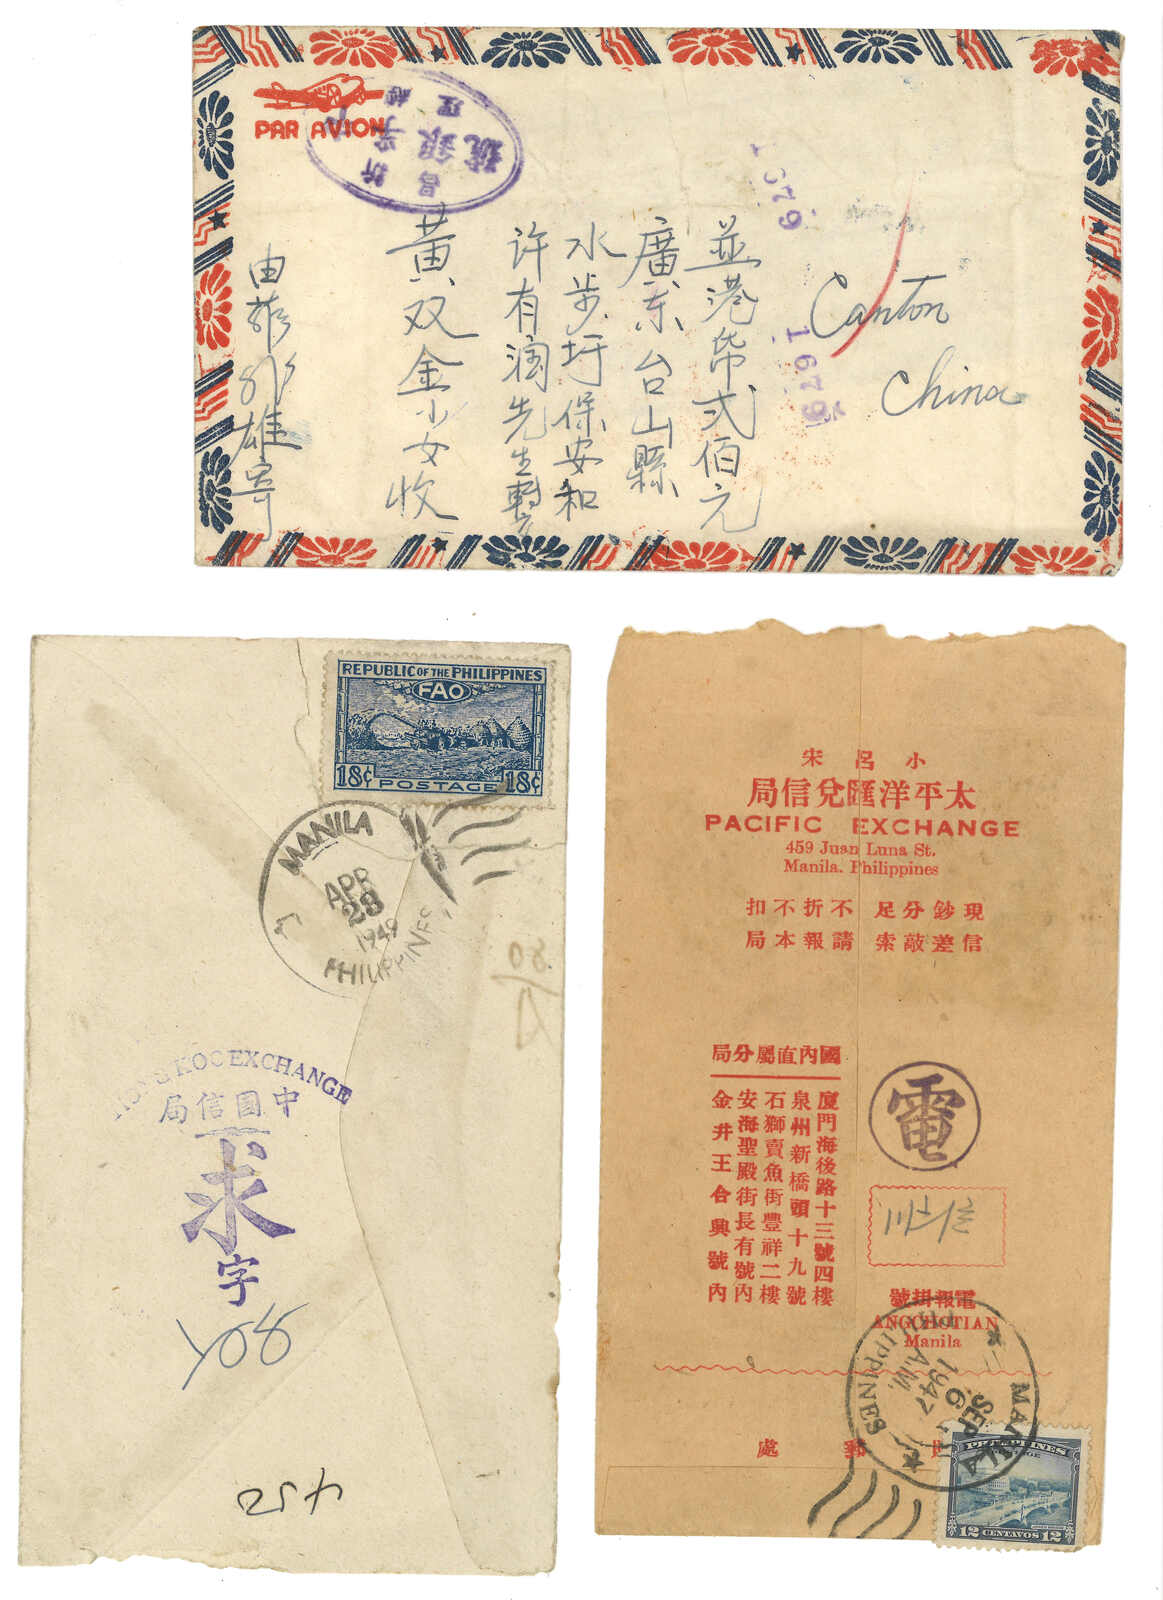 PAR AVION
號
銀
理
Canton
China
並港幣弍佰元
廣东台山縣
水步圩保安和
许有润先生轉交
黃双金小女收
寄
REPUBLIC OF THE PHILIPPINES
FAO
18¢ POSTAGE 18¢
MANILA
APR
28
1949
PHILIPPINES
EXCHANGE
中國信局
求
字
452
小呂宋
太平洋匯兌信局
PACIFIC EXCHANGE
459 Juan Luna St.
Manila. Philippines
現鈔分足不折不扣
信差敲索請報本局
國內直屬分局
廈門海後路十三號四樓
泉州新橋頭十九號
石獅賣魚街豐祥二樓
安海聖殿街長有號內
金井王合興號內
電
電報掛號
ANGCHOTIAN
Manila
MANILA
SEP
6
1947
A.M.
PHILIPPINES
郵
處
PHILIPPINES
12 CENTAVOS 12